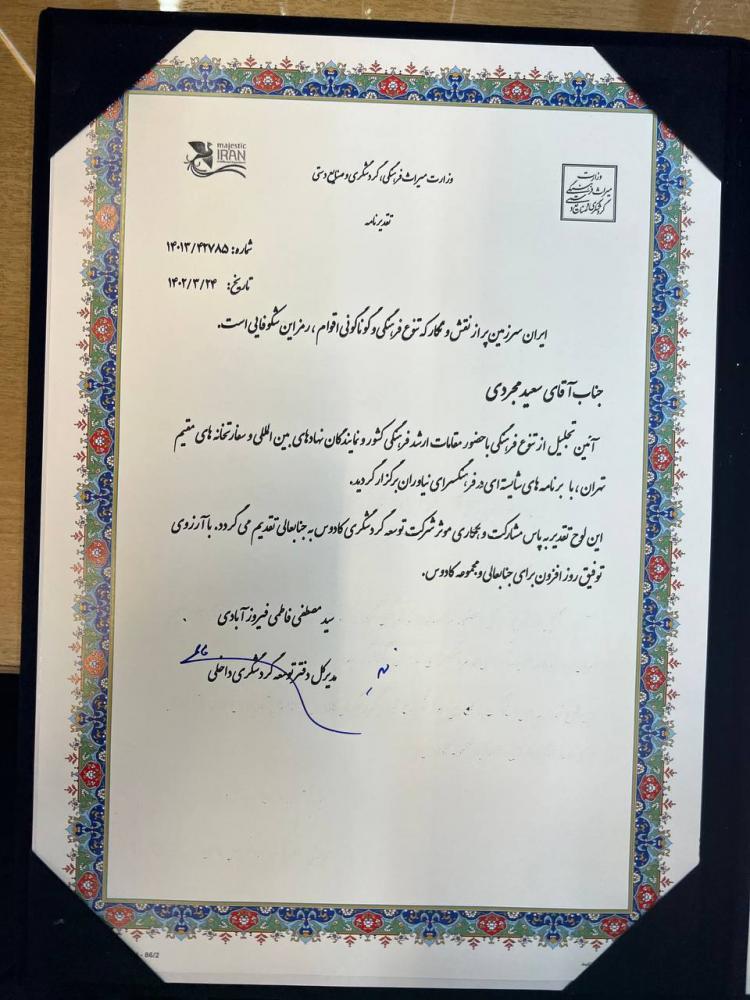 majestic
IRAN
وزارت
میراث فرهنگی
گردشگری و صنایع دستی
وزارت میراث فرهنگی، گردشگری و صنایع دستی
تقدیرنامه
شماره: ۱۴۰۱۳/۴۲۷۸۵
تاریخ: ۱۴۰۲/۳/۲۴
ایران سرزمین پر از نقش و نگار که تنوع فرهنگی و گوناگونی اقوام، رمز این شکوفایی است.
جناب آقای سعید مجردی
آئین تجلیل از تنوع فرهنگی با حضور مقامات ارشد فرهنگی کشور و نمایندگان نهادهای بین المللی و سفارتخانه های مقیم
تهران، با برنامه های شایسته ای در فرهنگسرای نیاوران برگزار گردید.
این لوح تقدیر به پاس مشارکت و همکاری موثر شرکت توسعه گردشگری کادوس به جنابعالی تقدیم می گردد. با آرزوی
توفیق روز افزون برای جنابعالی و مجموعه کادوس.
سید مصطفی فاطمی فیروزآبادی
مدیرکل دفتر توسعه گردشگری داخلی
86/2